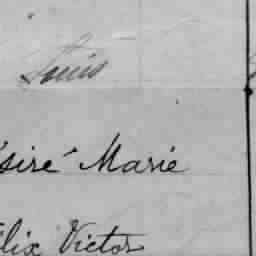 Louis
siré Marie
lix Victor